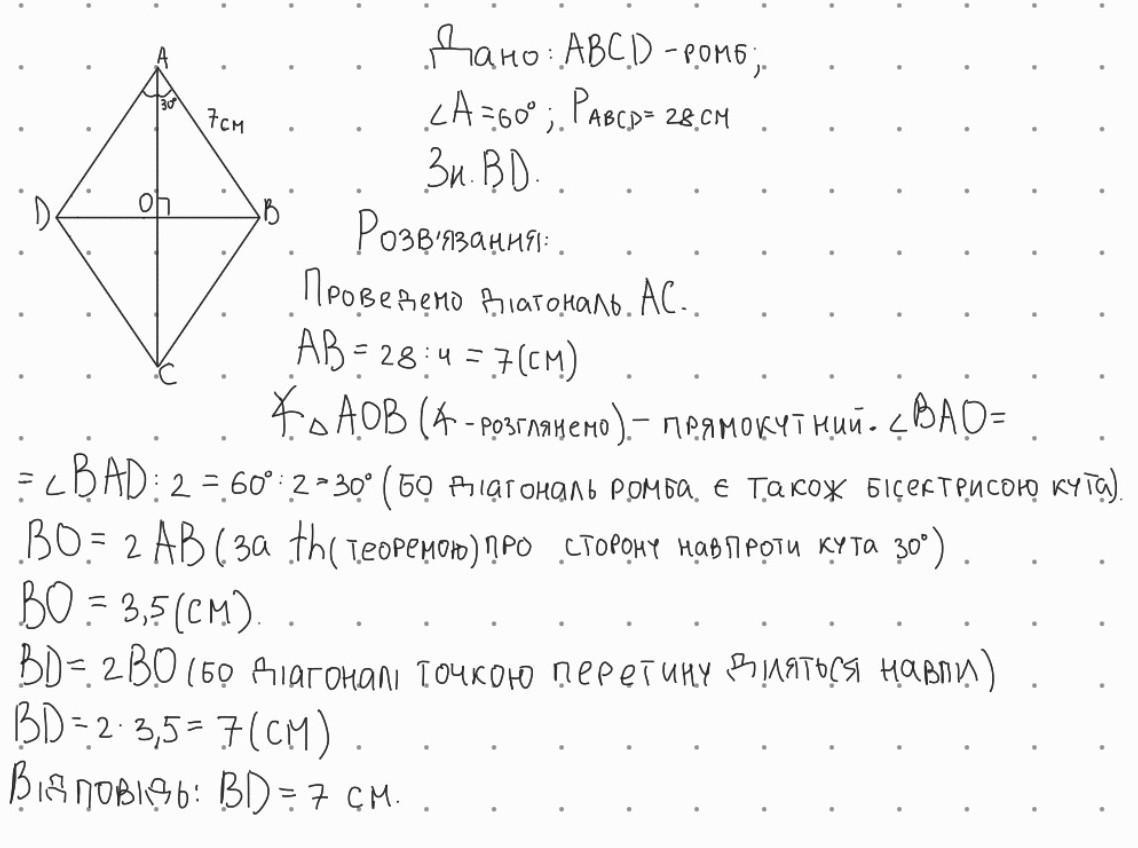 A
30°
7см
D
O
B
C
Дано: ABCD - ромб;
∠A=60°; PABCD= 28 см
Зн. BD.
Розв'язання:
Проведемо діагональ AC.
AB = 28 : 4 = 7(см)
∡ △AOB (∡ - розглянемо) - прямокутний. ∠BAO=
= ∠BAD : 2 = 60° : 2 = 30° (бо діагональ ромба є також бісектрисою кута).
BO = 2 AB (за th(теоремою) про сторону навпроти кута 30°)
BO = 3,5 (см).
BD = 2BO (бо діагоналі точкою перетину діляться навпіл)
BD = 2 · 3,5 = 7 (см)
Відповідь: BD = 7 см.